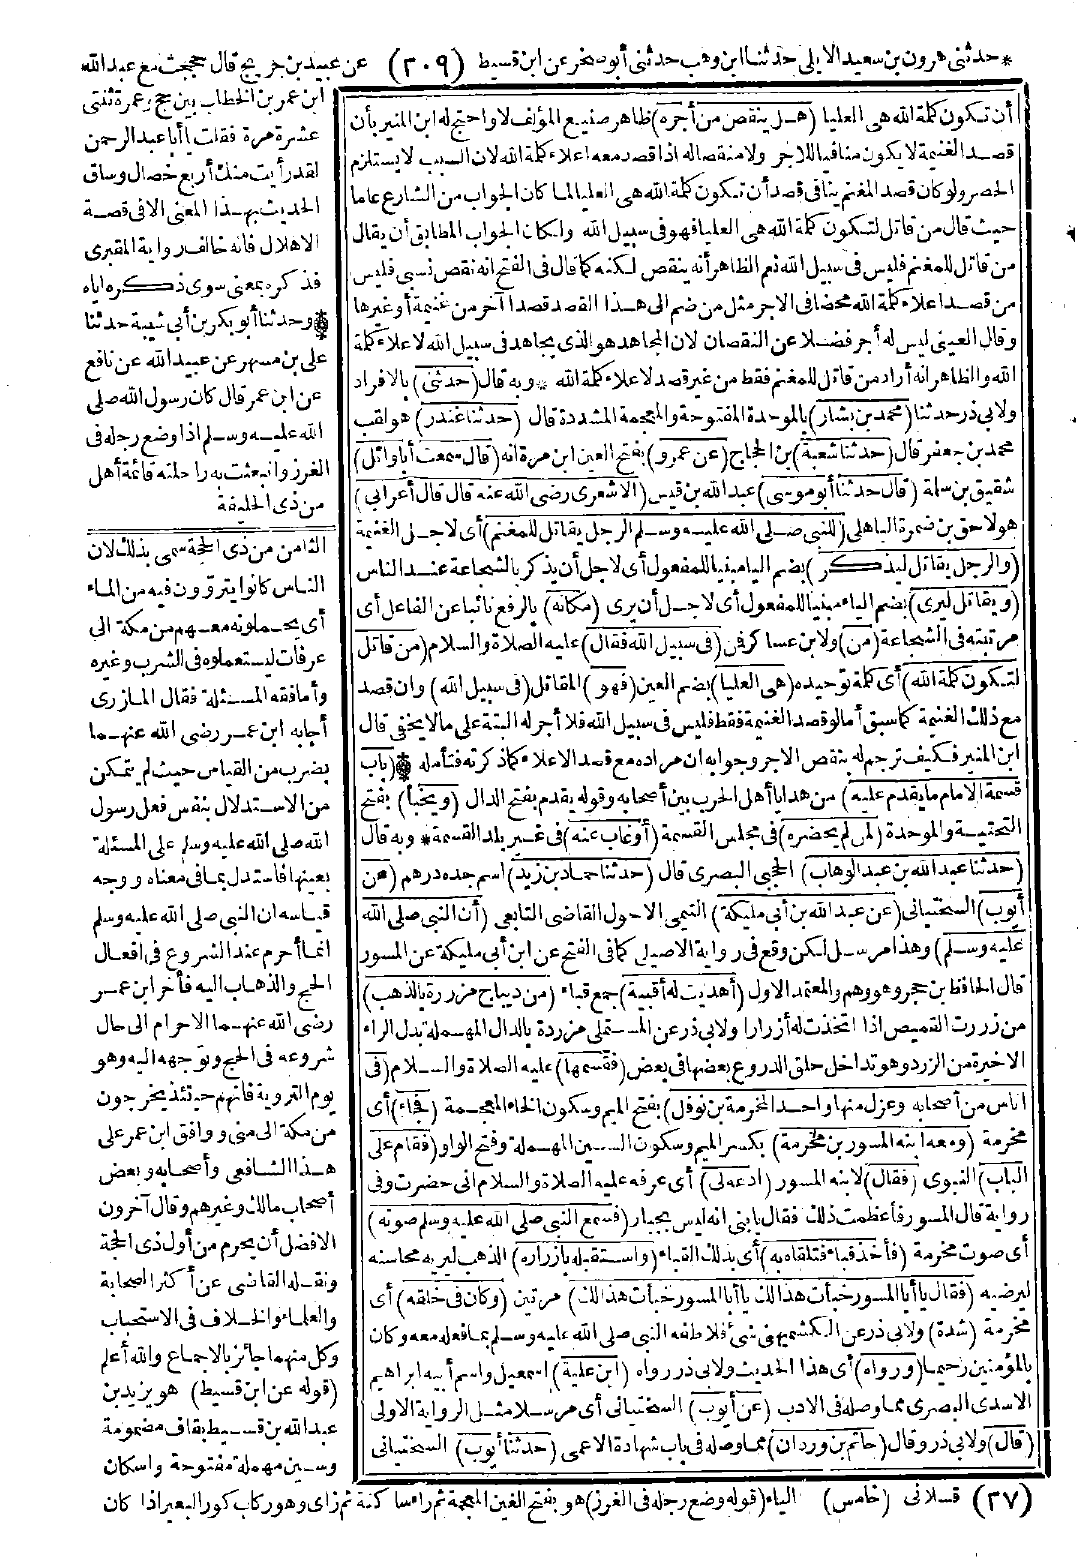 * حدثني هرون بن سعيد الايلى حدثنا ابن وهب حدثني أبو صخر عن ابن قسيط (٢٠٩) عن عبيد بن جريج قال حججت مع عبد الله
ابن عمر بن الخطاب بين حج وعمرة ثنتى
عشرة مرة فقلت يا أبا عبد الرحمن
لقد رأيت منك أربع خصال وساق
الحديث بهذا المعنى الا في قصة
الاهلال فانه خالف رواية المقبرى
فذكره بمعنى سوى ذكره اياه
وحدثنا أبو بكر بن أبي شيبة حدثنا
على بن مسهر عن عبيد الله عن نافع
عن ابن عمر قال كان رسول الله صلى
الله عليه وسلم اذا وضع رجله فى
الغرز وانبعثت به راحلته قائمة أهل
من ذى الحليفة
الثامن من ذى الحجة سمى بذلك لان
الناس كانوا يتروون فيه من الماء
أى يحملونه معهم من مكة الى
عرفات ليستعملوه فى الشرب وغيره
وأما فقه المسئلة فقال المازرى
أجابه ابن عمر رضى الله عنهما
بضرب من القياس حيث لم يتمكن
من الاستدلال بنفس فعل رسول
الله صلى الله عليه وسلم على المسئلة
بعينها فاستدل بما فى معناه ووجه
قياسه ان النبى صلى الله عليه وسلم
انما أحرم عند الشروع فى افعال
الحج والذهاب اليه فأخر ابن عمر
رضى الله عنهما الاحرام الى حال
شروعه فى الحج وتوجهه اليه وهو
يوم التروية فانهم حينئذ يخرجون
من مكة الى منى ووافق ابن عمر على
هذا الشافعى وأصحابه وبعض
أصحاب مالك وغيرهم وقال آخرون
الافضل أن يحرم من أول ذى الحجة
ونقله القاضى عن أكثر الصحابة
والعلماء والخلاف فى الاستحباب
وكل منهما جائز بالاجماع والله أعلم
(قوله عن ابن قسيط) هو يزيد بن
عبد الله بن قسيط بقاف مضمومة
وسين مهملة مفتوحة واسكان
أن تكون كلمة الله هى العليا (هل ينقص من أجره) ظاهر صنيع المؤلف لا واحتج له ابن المنير بأن
قصد الغنيمة لا يكون منافيا للاجر ولا منقصا له اذا قصد معه اعلاء كلمة الله لان السبب لا يستلزم
الحصر ولو كان قصد المغنم ينافى قصد أن تكون كلمة الله هى العليا لما كان الجواب من الشارع عاما
حيث قال من قاتل لتكون كلمة الله هى العليا فهو فى سبيل الله ولكان الجواب المطابق أن يقال
من قاتل للمغنم فليس فى سبيل الله نعم الظاهر أنه ينقص لكنه كما قال فى الفتح انه نقص نسبى فليس
من قصد اعلاء كلمة الله محضا فى الاجر مثل من ضم الى هذا القصد قصدا آخر من غنيمة أو غيرها
وقال العينى ليس له أجر فضلا عن النقصان لان المجاهد هو الذى يجاهد فى سبيل الله لاعلاء كلمة
الله والظاهر انه أراد من قاتل للمغنم فقط من غير قصد لاعلاء كلمة الله * وبه قال (حدثنى) بالافراد
ولابى ذر حدثنا (محمد بن بشار) بالموحدة المفتوحة والمعجمة المشددة قال (حدثنا غندر) هو لقب
محمد بن جعفر قال (حدثنا شعبة) بن الحجاج (عن عمرو) بفتح العين ابن مرة انه (قال سمعت أبا وائل)
شقيق بن سلمة (قال حدثنا أبو موسى) عبد الله بن قيس (الاشعرى رضى الله عنه قال قال أعرابى)
هو لاحق بن ضميرة الباهلى (للنبى صلى الله عليه وسلم الرجل يقاتل للمغنم) أى لاجل الغنيمة
(والرجل يقاتل ليذكر) بضم اليا مبنيا للمفعول أى لاجل أن يذكر بالشجاعة عند الناس
(ويقاتل ليرى) بضم الياء مبنيا للمفعول أى لاجل أن يرى (مكانه) بالرفع نائبا عن الفاعل أى
مرتبته فى الشجاعة (من) ولابن عساكر فمن (فى سبيل الله فقال) عليه الصلاة والسلام (من قاتل
لتكون كلمة الله) أى كلمة توحيده (هى العليا) بضم العين (فهو) المقاتل (فى سبيل الله) وان قصد
مع ذلك الغنيمة كما سبق أما لو قصد الغنيمة فقط فليس فى سبيل الله فلا أجر له البتة على ما لا يخفى قال
ابن المنير فكيف ترجم له بنقص الاجر وجوابه ان مراده مع قصد الاعلاء كما ذكرته فتأمله (باب
قسمة الامام ما يقدم عليه) من هدايا أهل الحرب بين أصحابه وقوله يقدم بفتح الدال (ويخبأ) بفتح
التحتية والموحدة (لمن لم يحضره) فى مجلس القسمة (أو غاب عنه) فى غير بلد القسمة * وبه قال
(حدثنا عبد الله بن عبد الوهاب) الحجبى البصرى قال (حدثنا حماد بن زيد) اسم جده درهم (عن
أيوب) السختيانى (عن عبد الله بن أبى مليكة) التيمى الاحول القاضى التابعى (أن النبى صلى الله
عليه وسلم) وهذا مرسل لكن وقع فى رواية الاصيلى كما فى الفتح عن ابن أبى مليكة عن المسور
قال الحافظ بن حجر وهو وهم والمعتمد الاول (أهديت له أقبية) جمع قباء (من ديباج مزررة بالذهب)
من زررت القميص اذا اتخذت له أزرارا ولابى ذر عن المستملى مزردة بالدال المهملة بدل الراء
الاخيرة من الزرد وهو تداخل حلق الدروع بعضها فى بعض (فقسمها) عليه الصلاة والسلام (فى
اناس من أصحابه وعزل منها واحدا لمخرمة بن نوفل) بفتح الميم وسكون الخاء المعجمة (فجاء) أى
مخرمة (ومعه ابنه المسور بن مخرمة) بكسر الميم وسكون السين المهملة وفتح الواو (فقام على
الباب) النبوى (فقال) لابنه المسور (ادعه لى) أى عرفه عليه الصلاة والسلام انى حضرت وفى
رواية قال المسور فأعظمت ذلك فقال يا بنى انه ليس بجبار (فسمع النبى صلى الله عليه وسلم صوته)
أى صوت مخرمة (فأخذ قباء فتلقاه به) أى بذلك القباء (واستقبله بازراره) الذهب ليريه محاسنه
ليرضيه (فقال يا أبا المسور خبأت هذا لك يا أبا المسور خبأت هذا لك) مرتين (وكان فى خلقه) أى
مخرمة (شدة) ولابى ذر عن الكشميهنى شئ فلاطفه النبى صلى الله عليه وسلم بما فعله معه وكان
بالمؤمنين رحيما (ورواه) أى هذا الحديث ولابى ذر رواه (ابن علية) اسمعيل واسم أبيه ابراهيم
الاسدى البصرى مما وصله فى الادب (عن أيوب) السختيانى أى مرسلا مثل الرواية الاولى
(قال) ولابى ذر وقال (حاتم بن وردان) مما وصله فى باب شهادة الاعمى (حدثنا أيوب) السختيانى
(٢٧) قسلانى (خامس) الياء (قوله وضع رجله فى الغرز) هو بفتح الغين المعجمة ثم راء ساكنة ثم زاى وهو ركاب كور البعير اذا كان